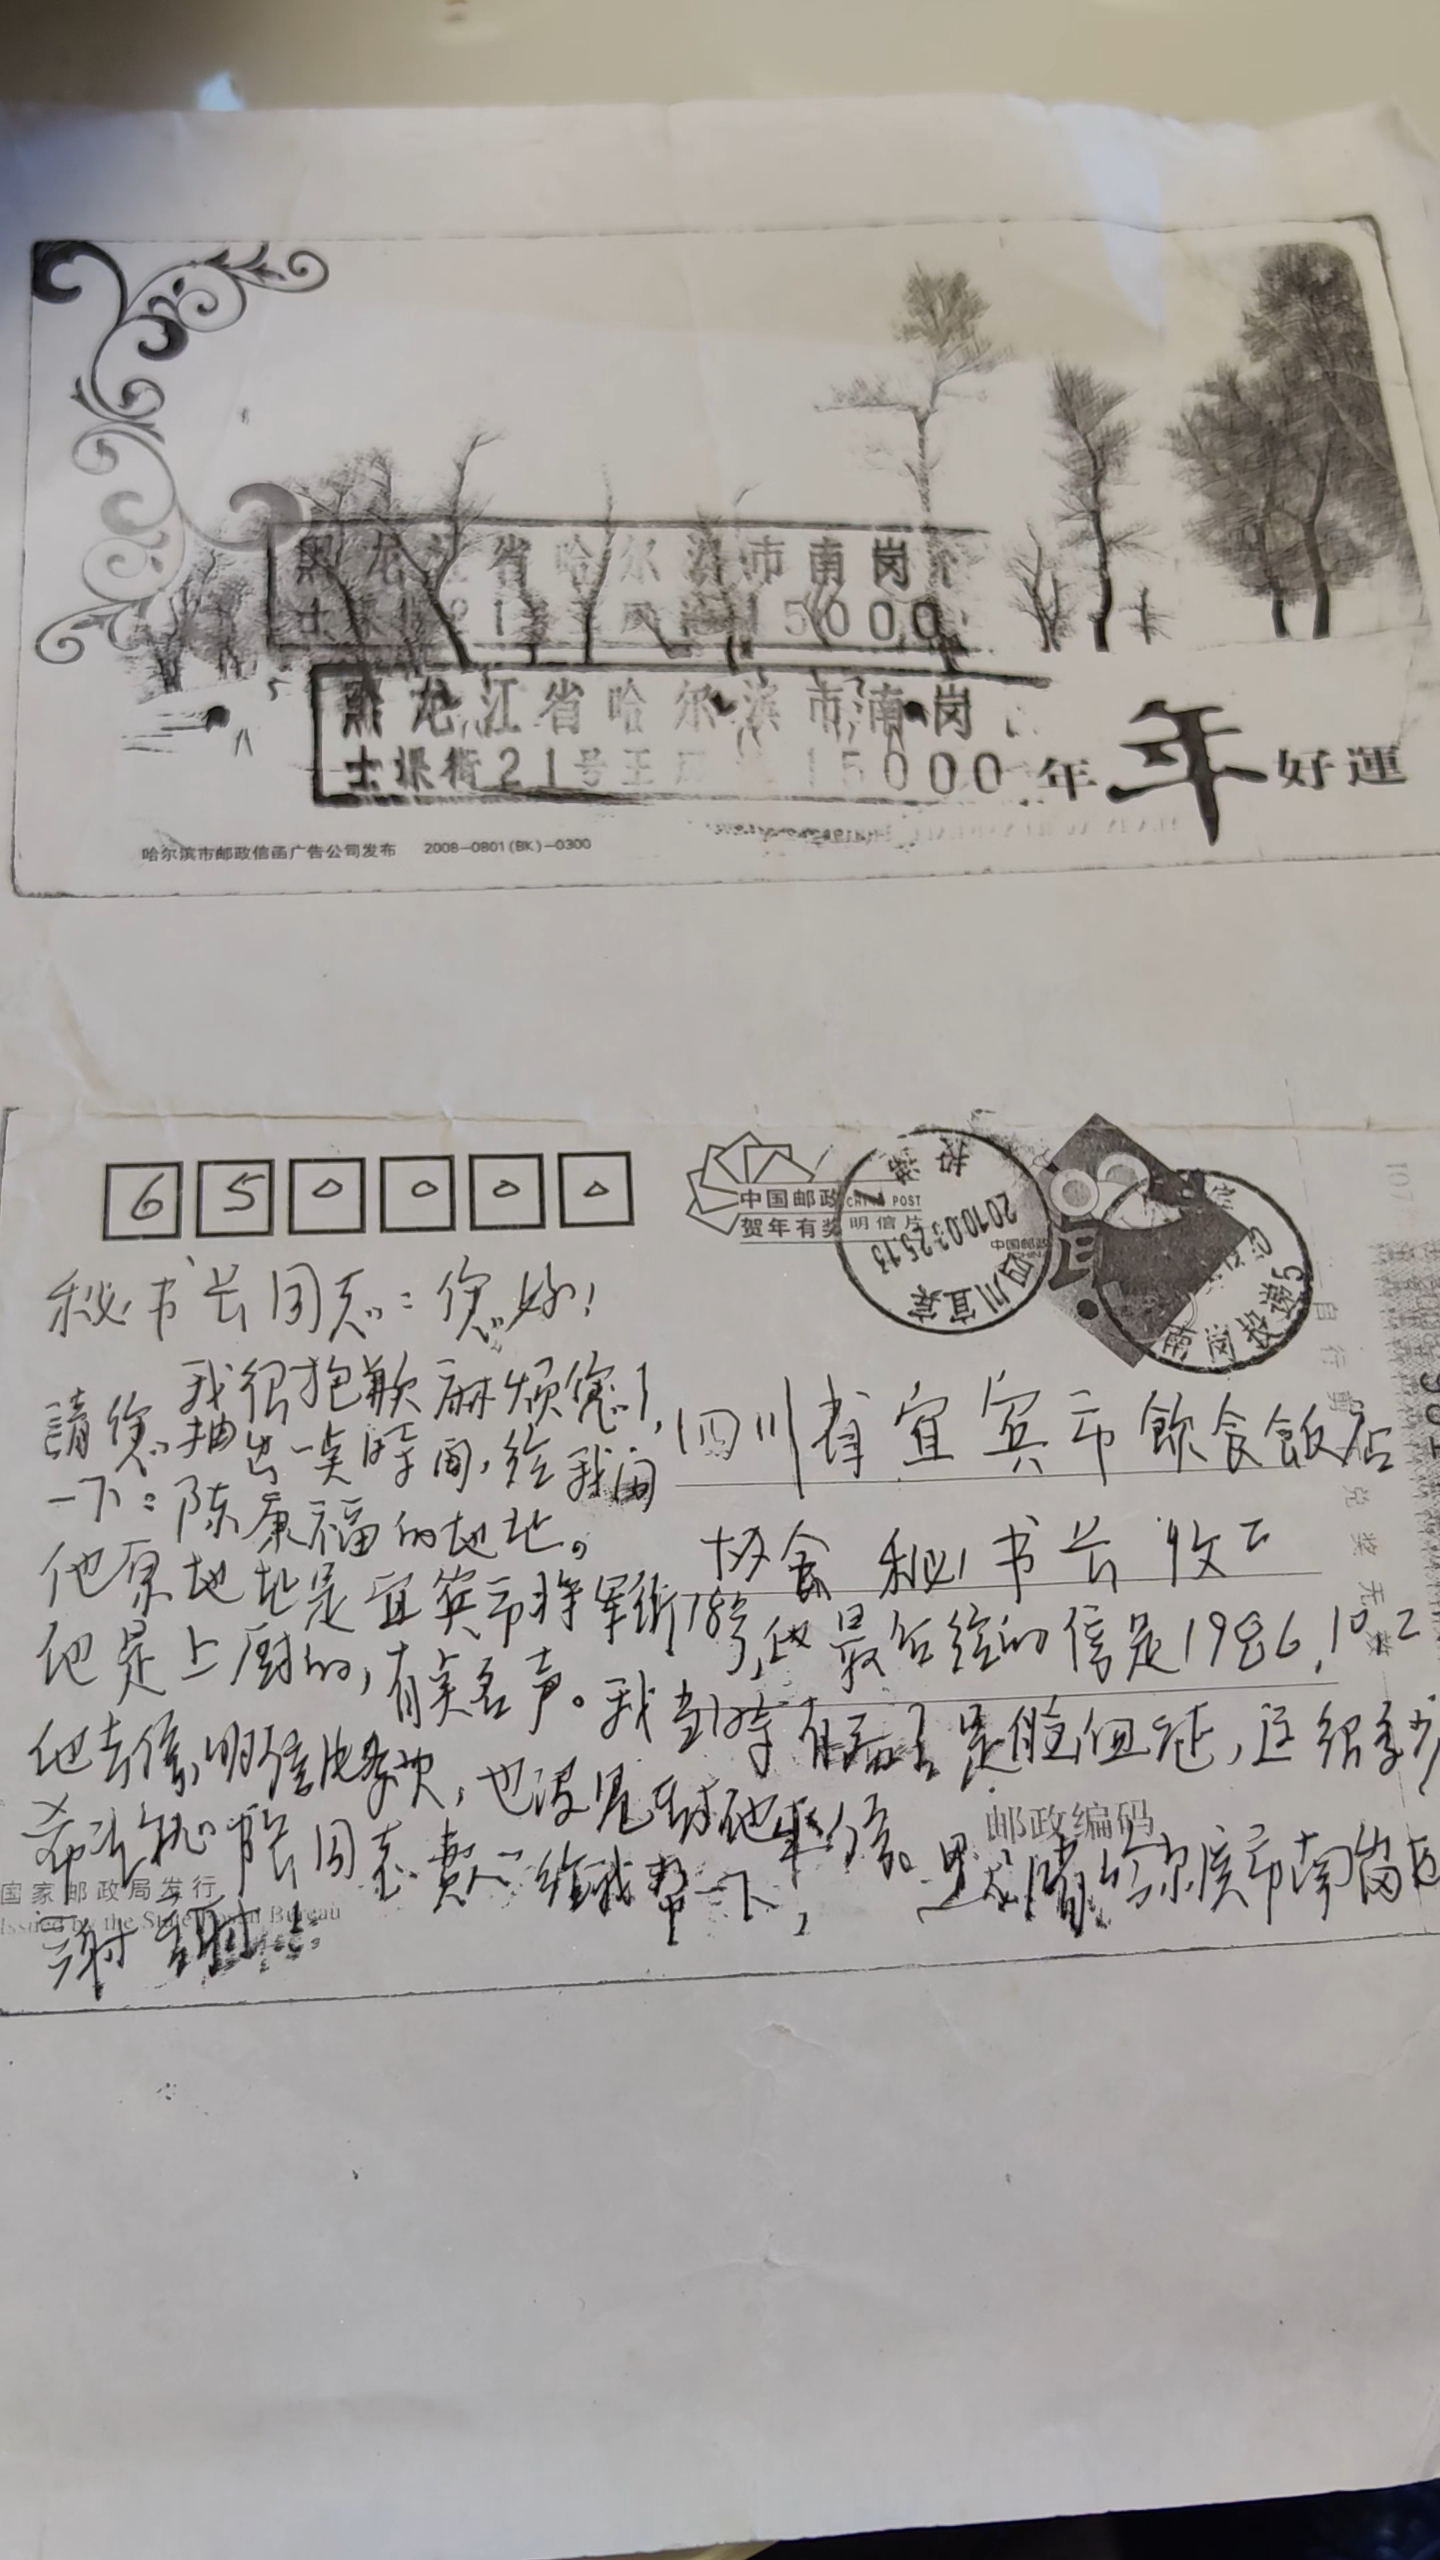 黑龙江省哈尔滨市南岗
21 15000
黑龙江省哈尔滨市南岗
士课街21号王 15000
年年好運
哈尔滨市邮政信函广告公司发布 2008-0801(BK)-0300
650000
中国邮政 CHINA POST
贺年有奖 明信片
2010.03.25.13
四川宜宾
中国邮政
南岗投递5
秘书长同志:您好!
我很抱歉麻烦您了,
請您抽出一点时间,给我问
一下:陈康福的地址。
四川省宜宾市飲食飯店
协会 秘书长 收
他原地址是宜宾市将军街78号,他最后给的信是1986.10.2
他是上厨的,有点名声。我当时有病是脑血 ,这很多少
他去信,明信片多次,也没见到他来信。
邮政编码
希望秘书长同志費心给我帮一下,
黑龙江省哈尔滨市南崗区
謝謝!
国家邮政局发行
Issued by the State Postal Bureau
兑奖无效